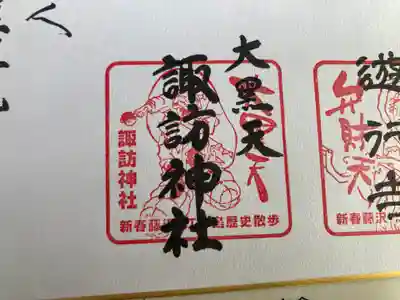 人
大黒天
諏訪神社
諏訪神社
遊行寺
弁財天
新春藤沢
歴史散歩
新春藤沢